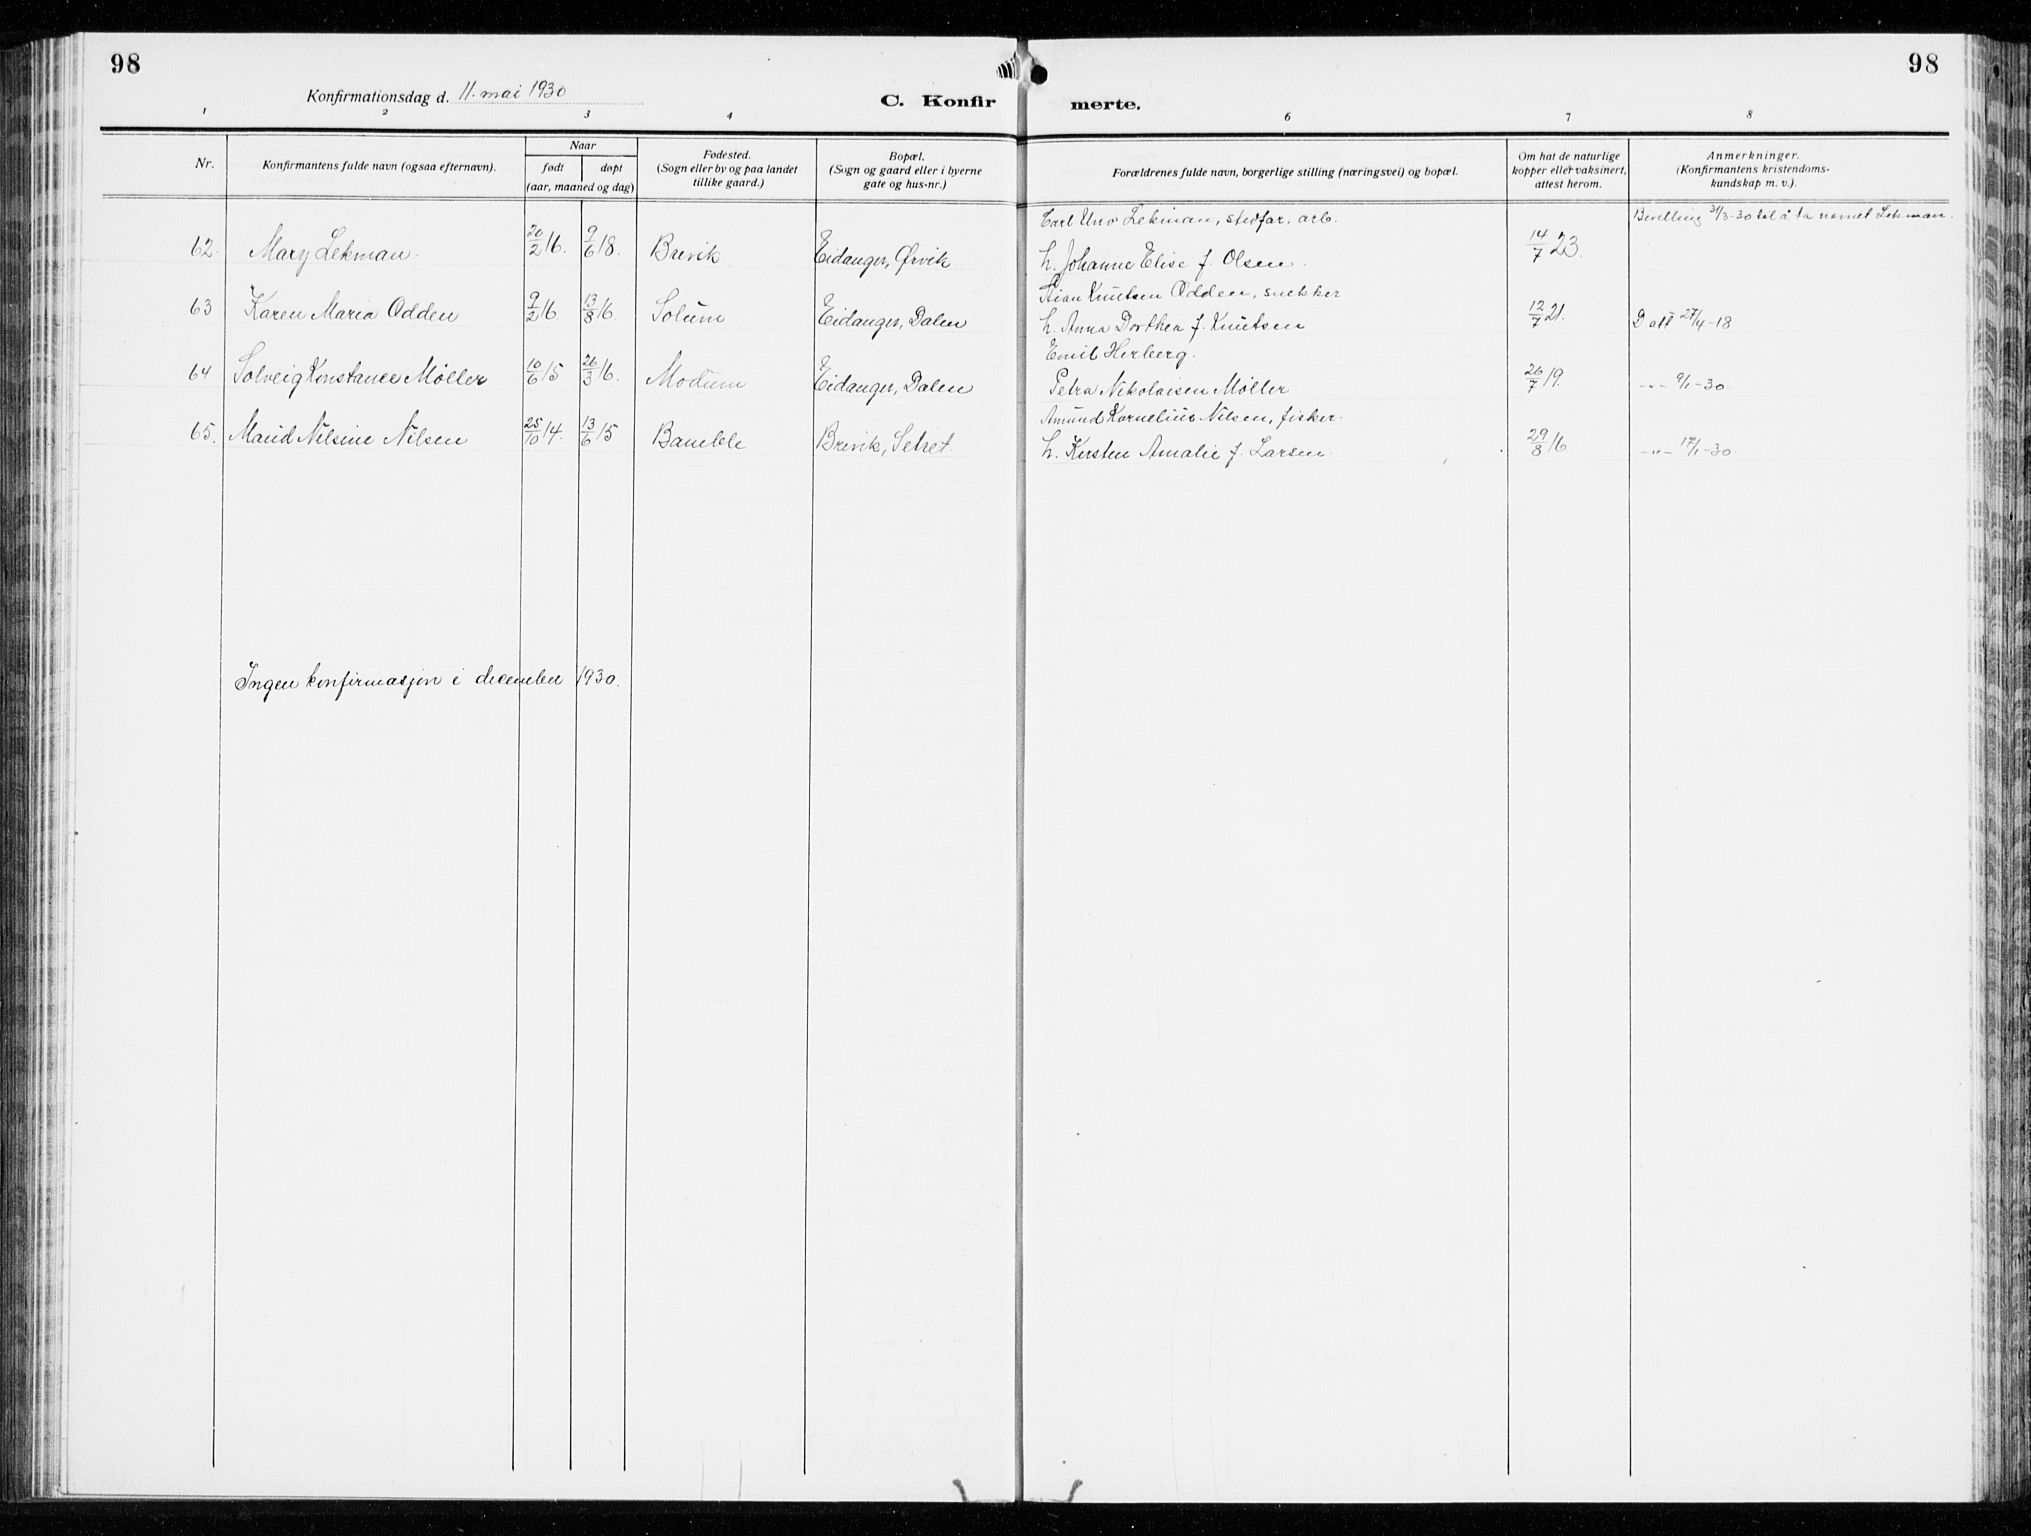 98
98
Konfirmationsdag d. 11. mai 1930
C. Konfir
merte.
1
2
3
4
6
7
8
Nr.
Konfirmantens fulde navn (ogsaa efternavn).
Naar
født
døpt
(aar, maaned og dag)
Fødested.
(Sogn eller by og paa landet
tillike gaard.)
Bopæl.
(Sogn og gaard eller i byerne
gate og hus-nr.)
Forældrenes fulde navn, borgerlige stilling (næringsvei) og bopæl.
Om hat de naturlige
kopper eller vaksinert,
attest herom.
Anmerkninger.
(Konfirmantens kristendoms-
kundskap m. v.).
Carl Uno Lekman, stedfar. arb. Bevilling 31/3-30 til å ta navnet Lekman.
62. Mary Lekman. 20/2 16. 9/6 18. Brevik Eidanger, Ørvik h. Johanne Elise f. Olsen. 14/7 23.
Stian Knutsen Odden, snekker
63 Karen Maria Odden 9/2 16. 13/8 16. Solum Eidanger, Dalen h. Anna Dorthea f. Knutsen 12/7 21. D att 27/4-18
Emil Herberg.
64 Solveig Konstance Møller 10/6 15 26/3 16. Modum Eidanger, Dalen Petra Nikolaisen Møller 26/7 19. -"- 9/1-30.
Amund Kornelius Nilsen, fisker.
65. Maud Nilsine Nilsen 25/10 14. 13/6 15 Bamble Brevik, Setret. h. Kirsten Amalie f. Larsen. 29/8 16 -"- 17/1-30.
Ingen konfirmasjon i december 1930.